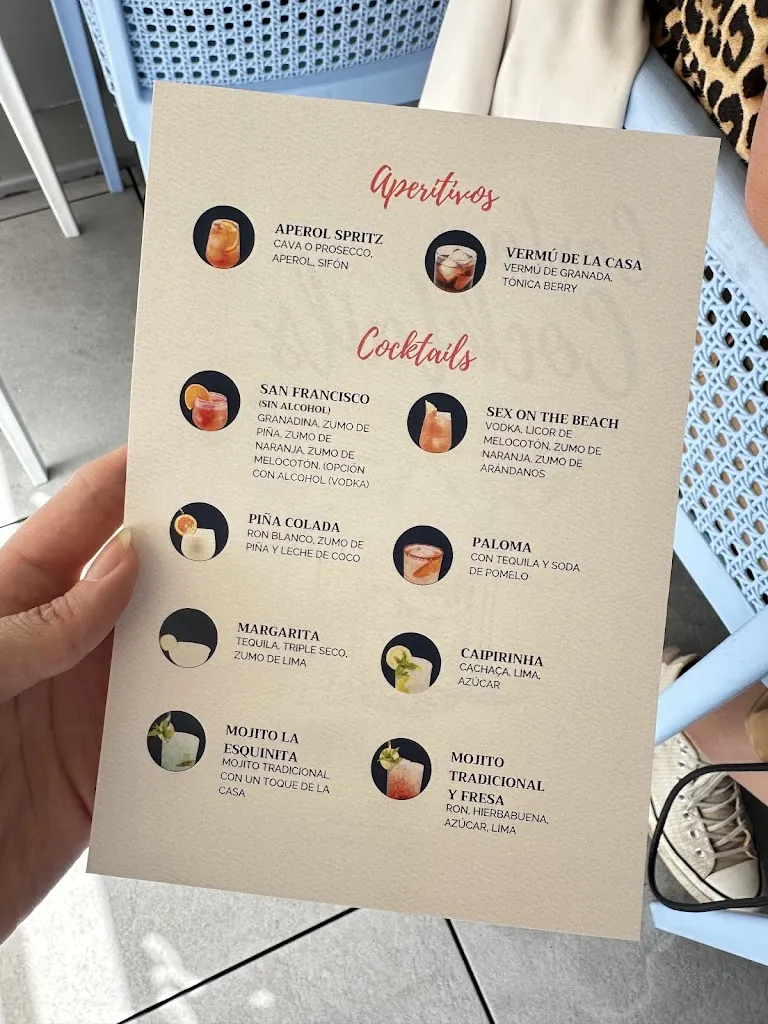 Aperitivos
APEROL SPRITZ
CAVA O PROSECCO,
APEROL, SIFÓN
VERMÚ DE LA CASA
VERMÚ DE GRANADA,
TÓNICA BERRY
Cocktails
SAN FRANCISCO
(SIN ALCOHOL)
GRANADINA, ZUMO DE
PIÑA, ZUMO DE
NARANJA, ZUMO DE
MELOCOTÓN. (OPCIÓN
CON ALCOHOL (VODKA)
SEX ON THE BEACH
VODKA, LICOR DE
MELOCOTÓN, ZUMO DE
NARANJA, ZUMO DE
ARÁNDANOS
PIÑA COLADA
RON BLANCO, ZUMO DE
PIÑA Y LECHE DE COCO
PALOMA
CON TEQUILA Y SODA
DE POMELO
MARGARITA
TEQUILA, TRIPLE SECO,
ZUMO DE LIMA
CAIPIRINHA
CACHAÇA, LIMA,
AZÚCAR
MOJITO LA
ESQUINITA
MOJITO TRADICIONAL
CON UN TOQUE DE LA
CASA
MOJITO
TRADICIONAL
Y FRESA
RON, HIERBABUENA,
AZÚCAR, LIMA